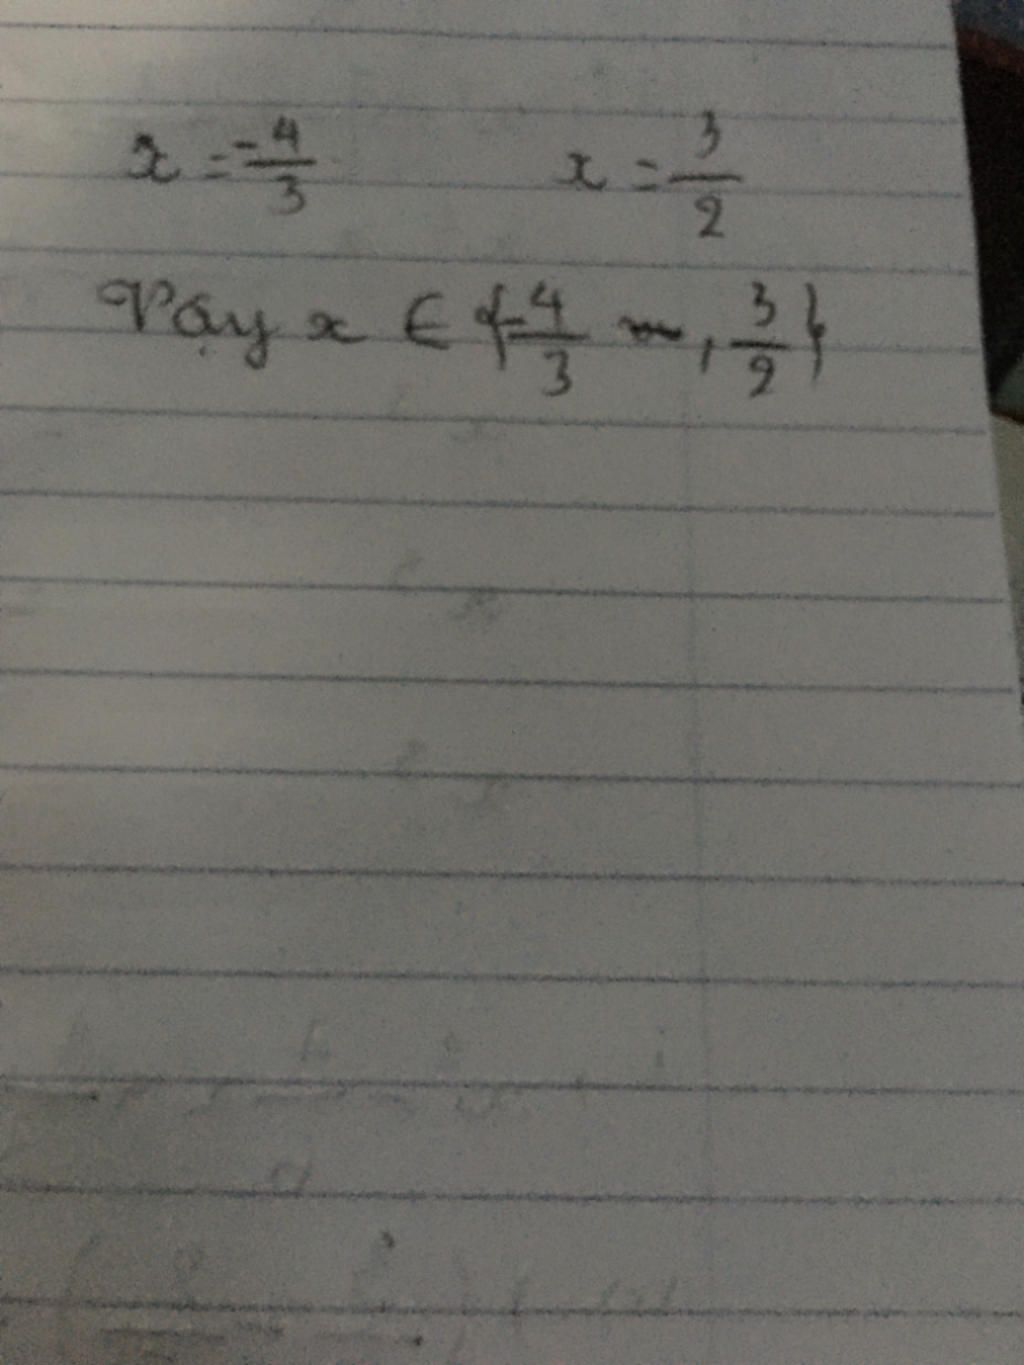 x = -4/3 x = 3/2
Vậy x ∈ {-4/3 , 3/2}